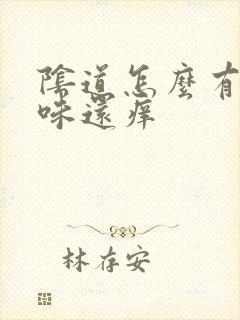 陰道怎麼有
味還癢
林存安